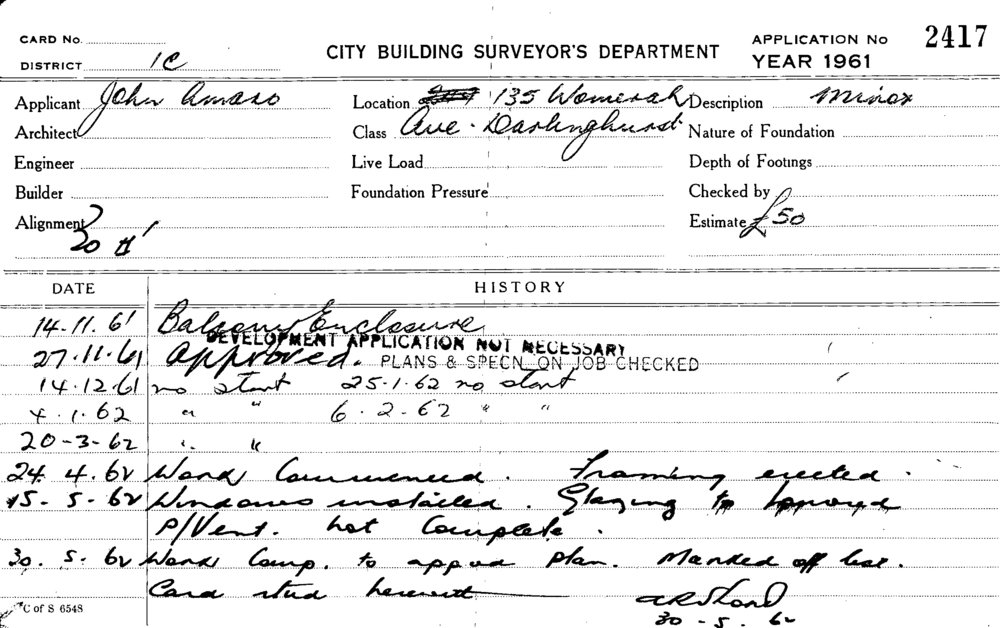 CARD No.
DISTRICT 1C
CITY BUILDING SURVEYOR'S DEPARTMENT
APPLICATION No 2417
YEAR 1961
Applicant John Amaro Location 135 Womerah Description Minor
Architect Class Ave. Darlinghurst Nature of Foundation
Engineer Live Load Depth of Footings
Builder Foundation Pressure Checked by
Alignment Estimate £50
20
DATE HISTORY
14.11.61 Balcony Enclosure
DEVELOPMENT APPLICATION NOT NECESSARY
27.11.61 Approved. PLANS & SPECN ON JOB CHECKED
14.12.61 no start 25.1.62 no start
4.1.62 " " 6.2.62 " "
20-3-62 " "
24.4.62 Work Commenced. Framing erected.
15-5-62 Windows installed. Glazing to
P/Vent. not Complete.
30.5.62 Work Comp. to plan. Marked off
Card herewith
30-5-62
C of S 6548